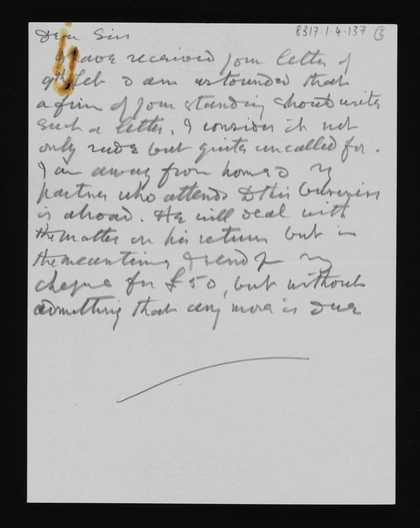 8317.1.4.137 (3
Dear Sirs
I have received your letter of
9th Feb & am astounded that
a firm of your standing should write
such a letter. I consider it not
only rude but quite uncalled for.
I am away from home & my
partner who attends to this business
is abroad. He will deal with
the matter on his return but in
the meantime I send you my
cheque for £50, but without
admitting that any more is due